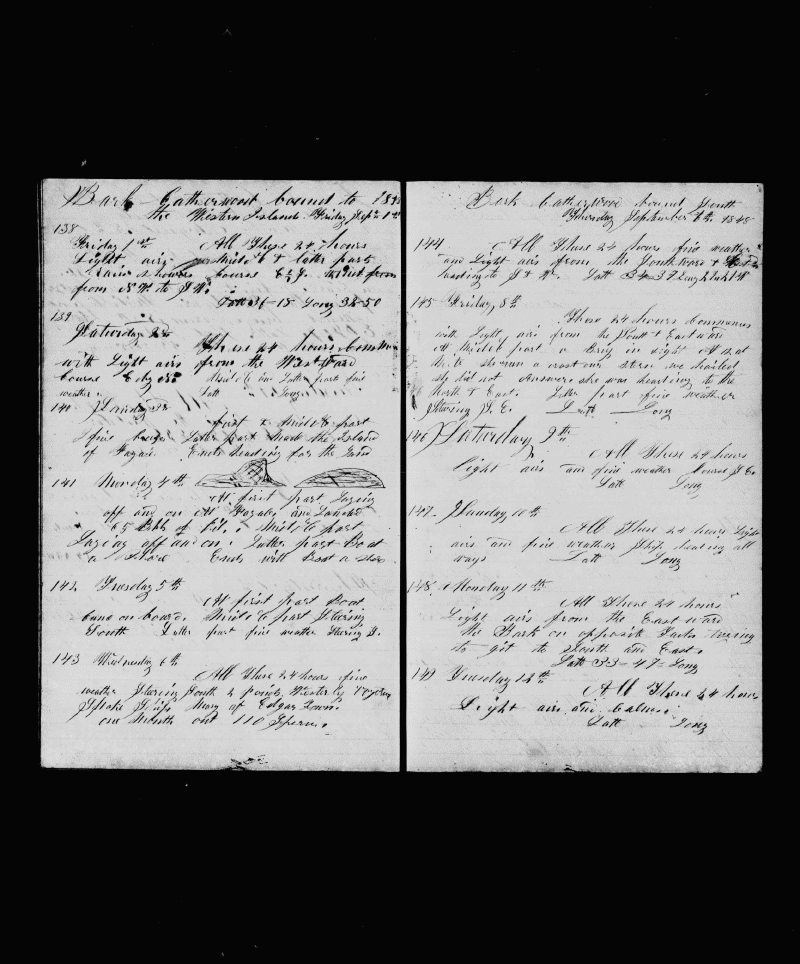 Bark Catherwood bound to 1848
the Western Island Friday Sept 1st
138
Friday 1st All These 24 hours
Light airs middle & latter part
Rain showers course E by S Wind from
from N W to S W.
Latt 36-18 Long 32-50
139
Saturday 2d These 24 hours
with Light airs from the Westward
course E by Middle and Latter part fine
weather Latt Long
140 Sunday 3d first & middle part
fine Latter part Made the Island
of Ends heading for the land
141 Monday 4th
At first part Laying
off and on At and Landed
65 Bbls of Oil. Middle part
Laying off and on. Latter part Boat
a Shore Ends with Boat a shore
142 Tuesday 5th
At first part Boat
came on board. Middle part Steering
South Latter part fine weather Steering S.
143 Wednesday 6th
All These 24 hours fine
weather Steering South 2 points Westerly
Spoke Ship Mary of Edgar Town
one Month out 110 Sperm.
Bark Catherwood bound South
Thursday September 7th. 1848
144 All These 24 hours fine weather
and Light airs from the Southward &
heading to S & W. Latt 34-37 Long
145 Friday 8th
These 24 hours Commences
with Light airs from the South & Eastward
At Middle part a Brig in sight At 2 at
she run a cross our stern we hailed
she did not Answer she was heading to the
North & East. Latter part fine weather
Steering S. E. Latt Long
146 Saturday 9th
All These 24 hours
light airs and fine weather Course S E
Latt Long
147 Sunday 10th
All These 24 hours Light
airs and fine weather Ship heading all
ways Latt Long
148. Monday 11th
All These 24 hours
Light airs from the Eastward
the Bark on opposite Tacks trying
to git to South and East.
Latt 33-47 Long
149 Tuesday 12th
All These 24 hours
Light airs and Calms.
Latt Long